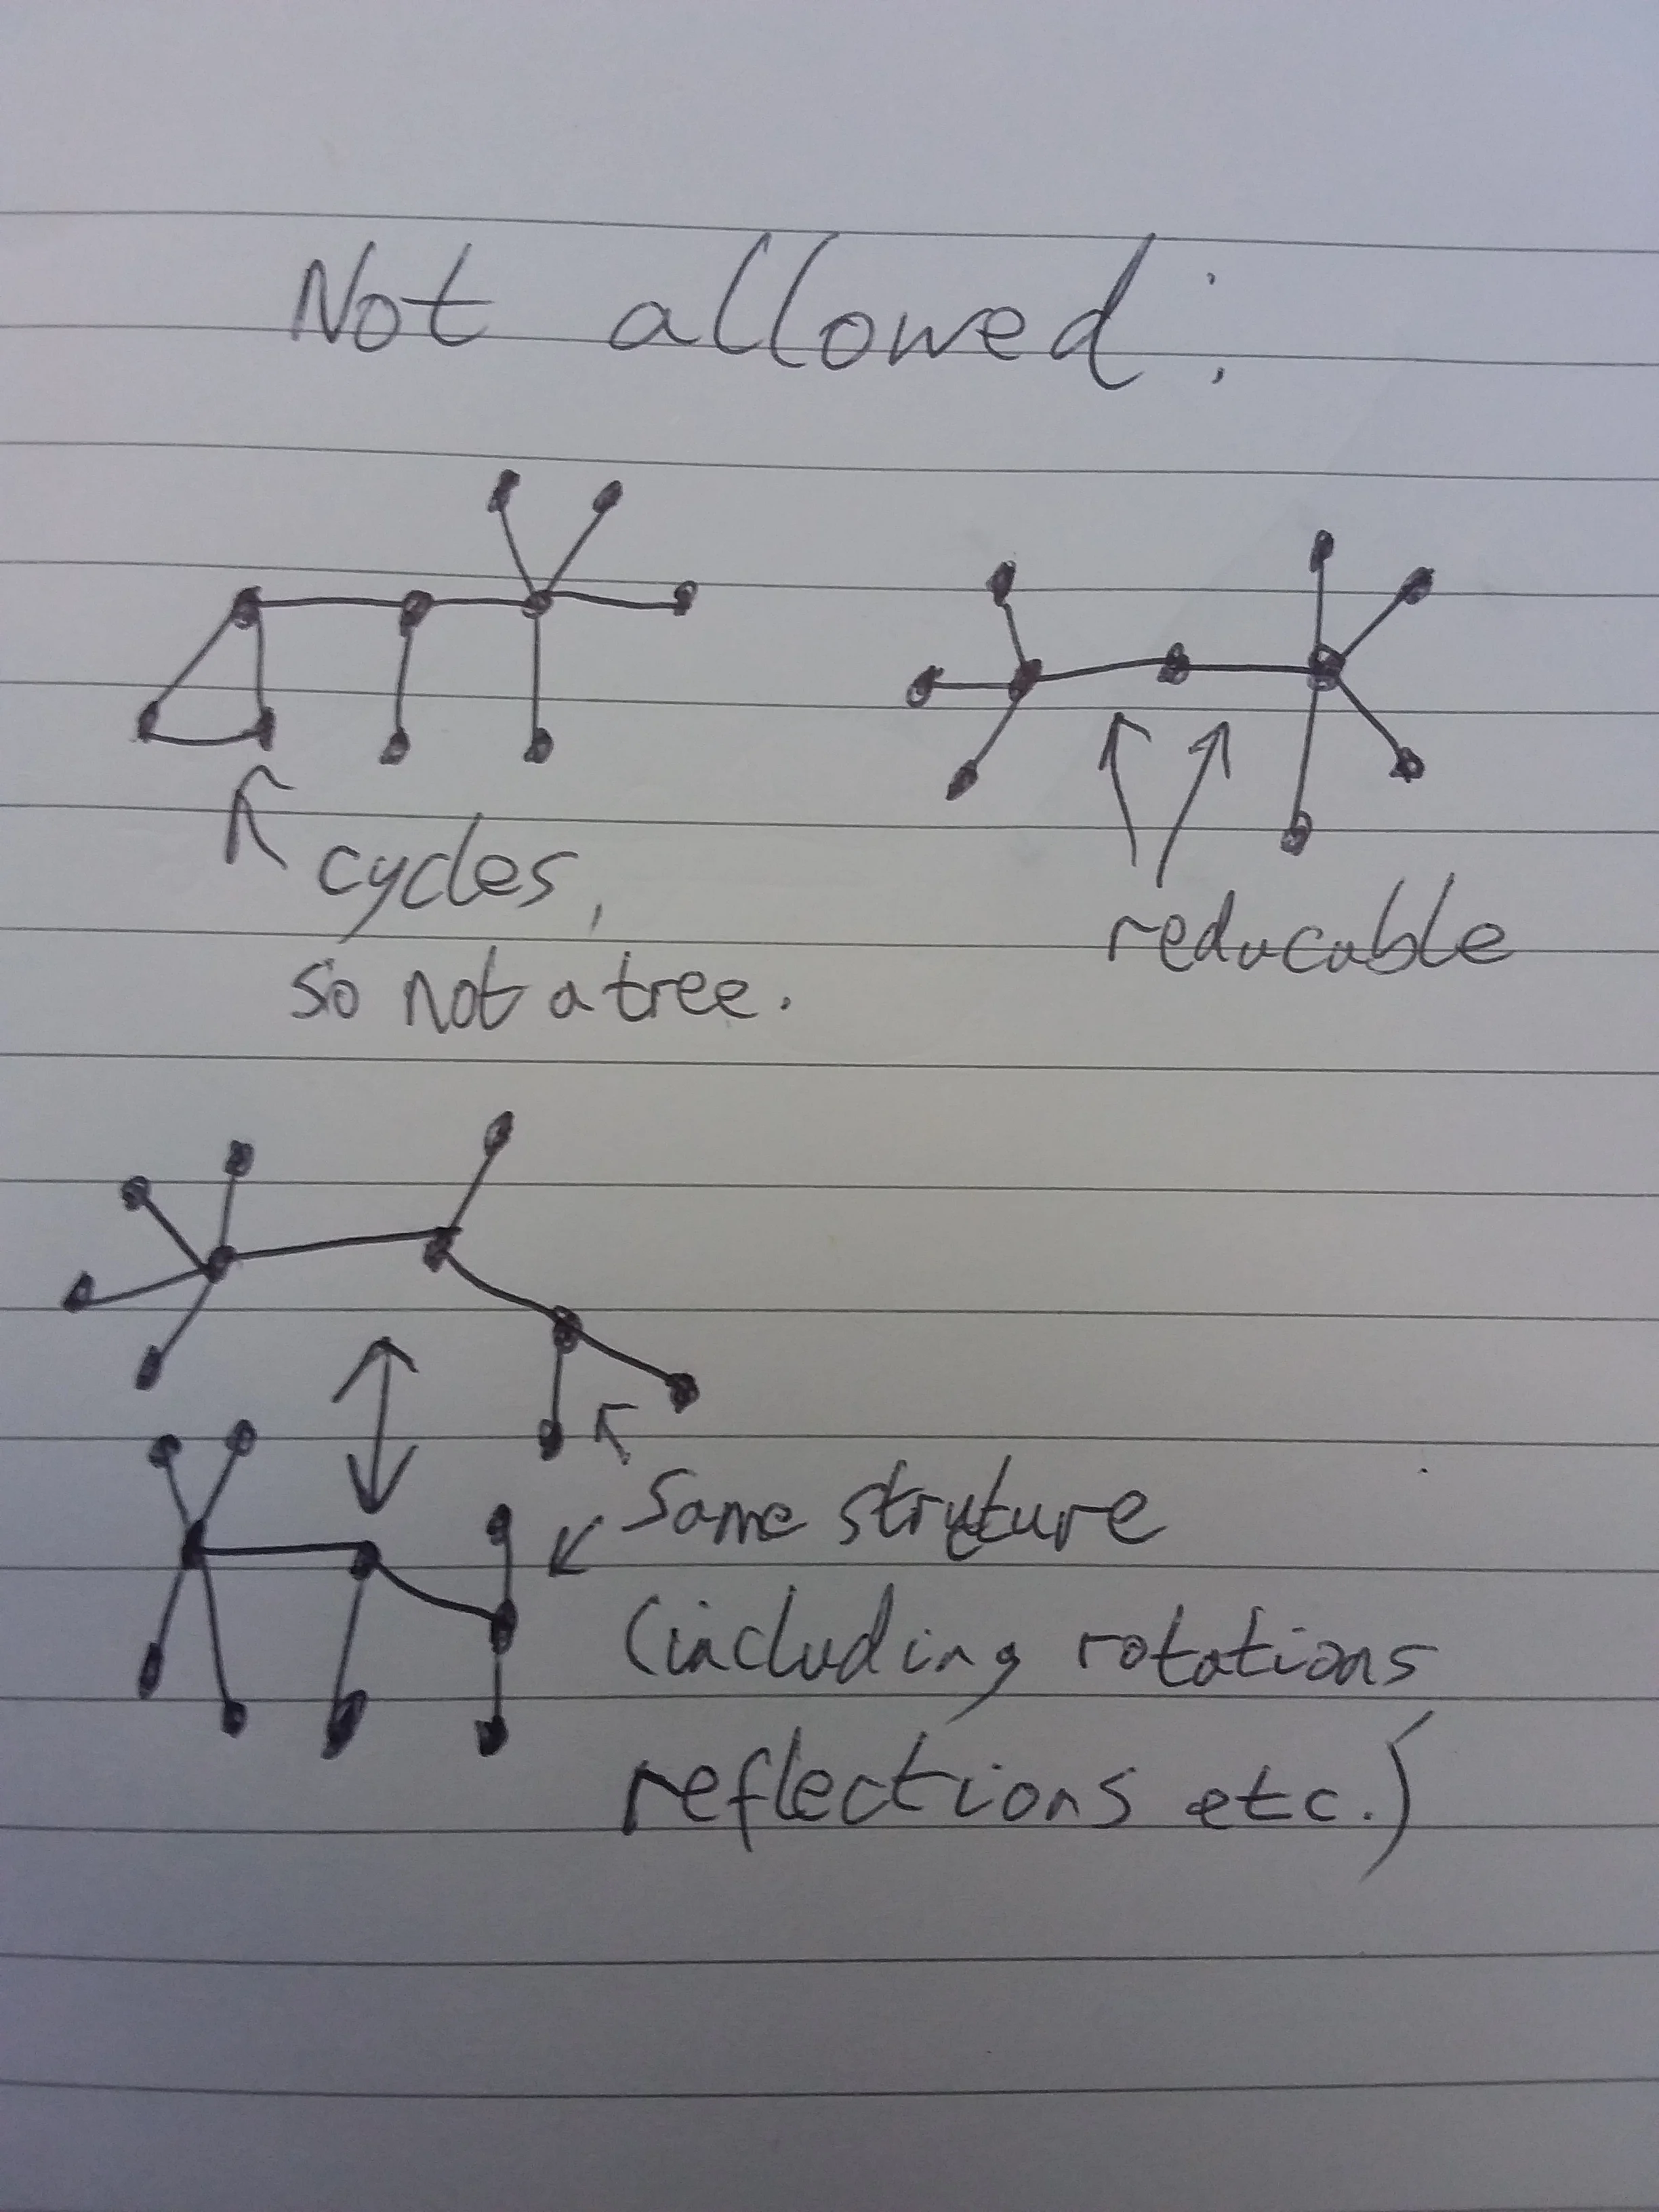 Not allowed:
cycles,
so not a tree.
reducable
Same struture
(including rotations
reflections etc.)